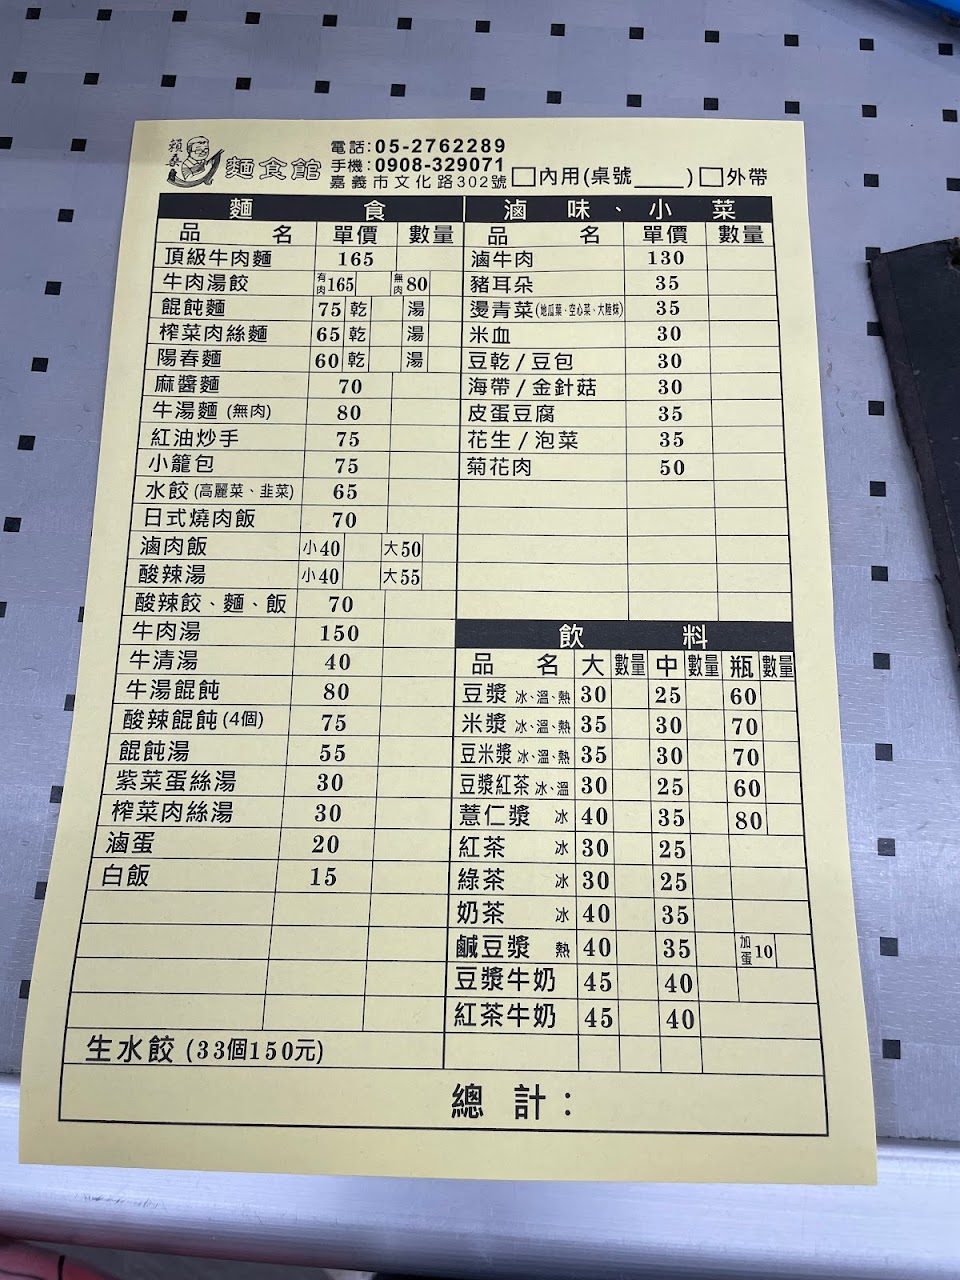 賴桑 麵食館
電話:05-2762289
手機:0908-329071
嘉義市文化路302號 □內用(桌號____) □外帶
麵 食
品 名 單價 數量
頂級牛肉麵 165
牛肉湯餃 有肉165 無肉80
餛飩麵 75 乾 湯
榨菜肉絲麵 65 乾 湯
陽春麵 60 乾 湯
麻醬麵 70
牛湯麵 (無肉) 80
紅油炒手 75
小籠包 75
水餃 (高麗菜、韭菜) 65
日式燒肉飯 70
滷肉飯 小40 大50
酸辣湯 小40 大55
酸辣餃、麵、飯 70
牛肉湯 150
牛清湯 40
牛湯餛飩 80
酸辣餛飩 (4個) 75
餛飩湯 55
紫菜蛋絲湯 30
榨菜肉絲湯 30
滷蛋 20
白飯 15
生水餃 (33個150元)
滷 味、小 菜
品 名 單價 數量
滷牛肉 130
豬耳朵 35
燙青菜(地瓜葉、空心菜、大陸妹) 35
米血 30
豆乾/豆包 30
海帶/金針菇 30
皮蛋豆腐 35
花生/泡菜 35
菊花肉 50
飲 料
品 名 大 數量 中 數量 瓶 數量
豆漿 冰、溫、熱 30 25 60
米漿 冰、溫、熱 35 30 70
豆米漿 冰、溫、熱 35 30 70
豆漿紅茶 冰、溫 30 25 60
薏仁漿 冰 40 35 80
紅茶 冰 30 25
綠茶 冰 30 25
奶茶 冰 40 35
鹹豆漿 熱 40 35 加蛋10
豆漿牛奶 45 40
紅茶牛奶 45 40
總 計：